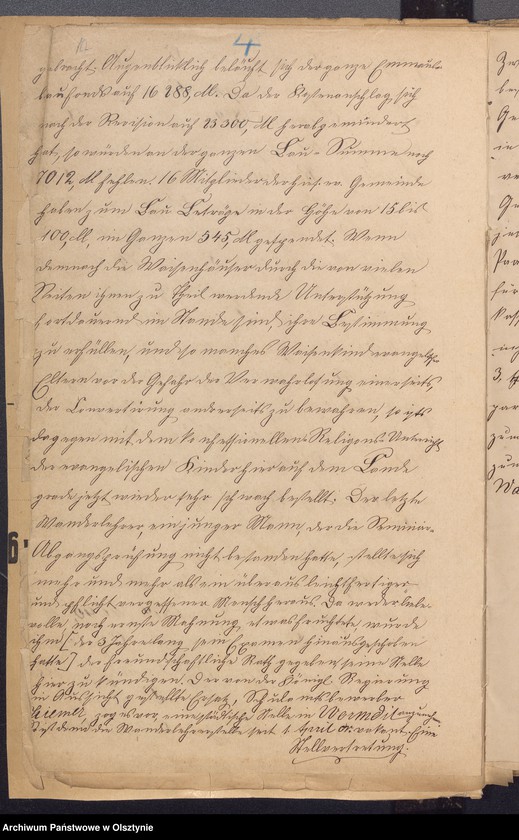 4
gebracht. Augenblicklich beläuft sich der ganze Emmaus-
baufonds auf 16 288, M. Da der Kostenanschlag sich
nach der Revision auf 23 300, M herabgemindert
hat, so würden an der ganzen Bau-Summe noch
7012, M fehlen. 16 Mitglieder der hies. ev. Gemeinde
haben zum Bau Beträge in der Höhe von 15 bis
100, M, im Ganzen 545 M gespendet. Wenn
demnach die Waisenhäuser durch die von vielen
Seiten ihnen zu Theil werdende Unterstützung
fortdauernd im Stande sind, ihre Bestimmung
zu erfüllen, und so manches Waisenkind evangelischer
Eltern vor der Gefahr der Verwahrlosung einerseits,
der Convertirung anderseits zu bewahren, so ists
dagegen mit dem konfessionellen Religions-Unterricht
der evangelischen Kinder hier auf dem Lande
grade jetzt wieder sehr schwach bestellt. Der letzte
Wanderlehrer, ein junger Mann, der die Seminar-
Abgangsprüfung nicht bestanden hatte, stellte sich
mehr und mehr als ein überaus leichtfertiger
und pflichtvergessener Mensch heraus. Da weder liebe-
volle noch ernste Mahnung etwas fruchtete, wurde
ihm [der 3 Jahre lang sein Examen hinausgeschoben
hatte] der freundschaftliche Rath gegeben, seine Stelle
hier zu kündigen. Der von der Königl. Regierung
in Aussicht gestellte Ersatz, Schulamtsbewerber
Ziemer zog es vor, eine städtische Stelle in Wormditt
Ist demnach die Wanderlehrerstelle seit 1 April cr. vakant. Eine
Stellvertretung.
6
Archiwum Państwowe w Olsztynie